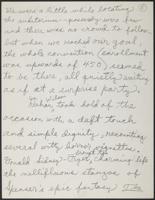 We were a little while locating
the auditorium - possibly was fun
and there was no crowd to follow.
But when we reached our goal
the whole convention (enrollment
was upwards of 450) seemed
to be there, all quietly waiting
as if at a surprise party.
took hold of the
occasion with a deft touch
and simple dignity, recounting
several witty horror vignettes.
Donald Sidney-Fryer, charming like
the mellifluous stanzas of
Spenser's epic fantasy The